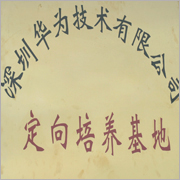 深圳华为技术有限公司
定向培养基地